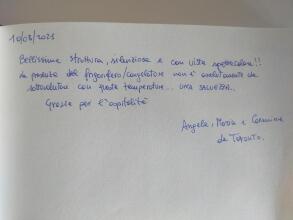 10/08/2021
Bellissima struttura, silenziosa e con vista spettacolare!!
La presenza del frigorifero/congelatore non è assolutamente da
sottovalutare con queste temperature... una salvezza..
Grazie per l'ospitalità
Angela, Maria e Carmine
da Taranto.